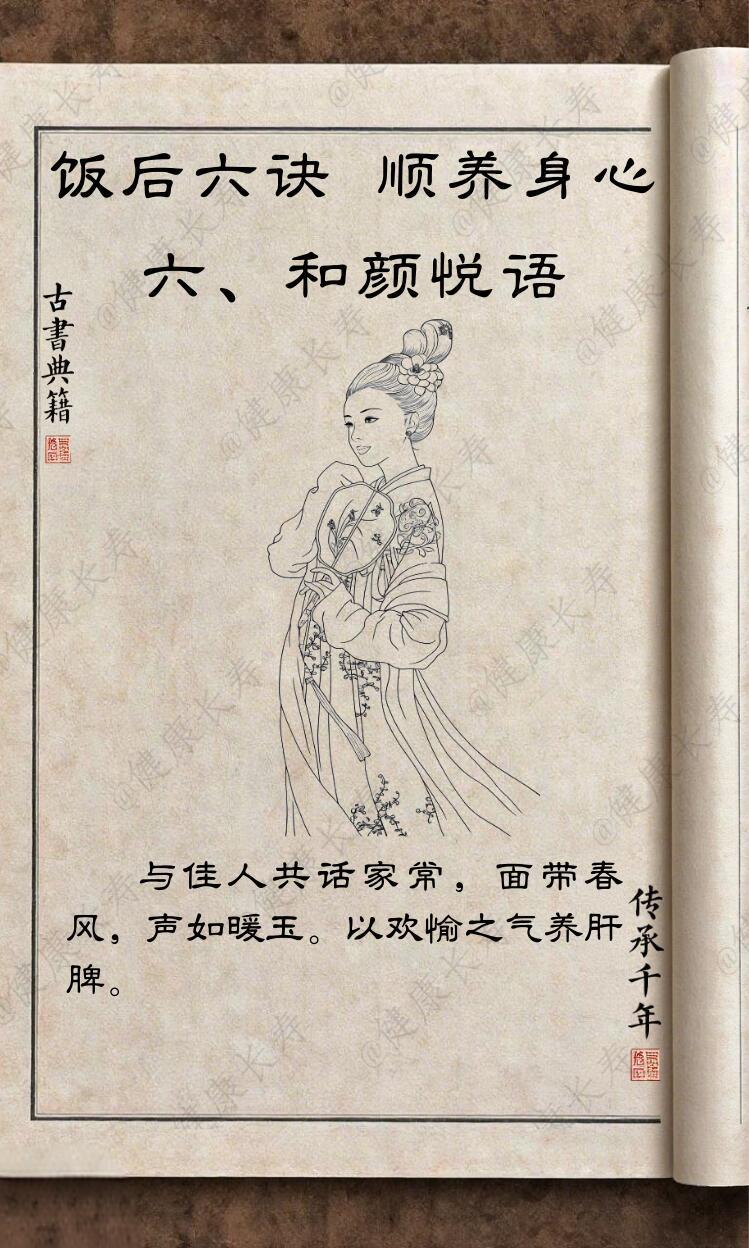 饭后六诀 顺养身心
六、和颜悦语
古書典籍
与佳人共话家常，面带春
风，声如暖玉。以欢愉之气养肝
脾。
传承千年
@健康长寿